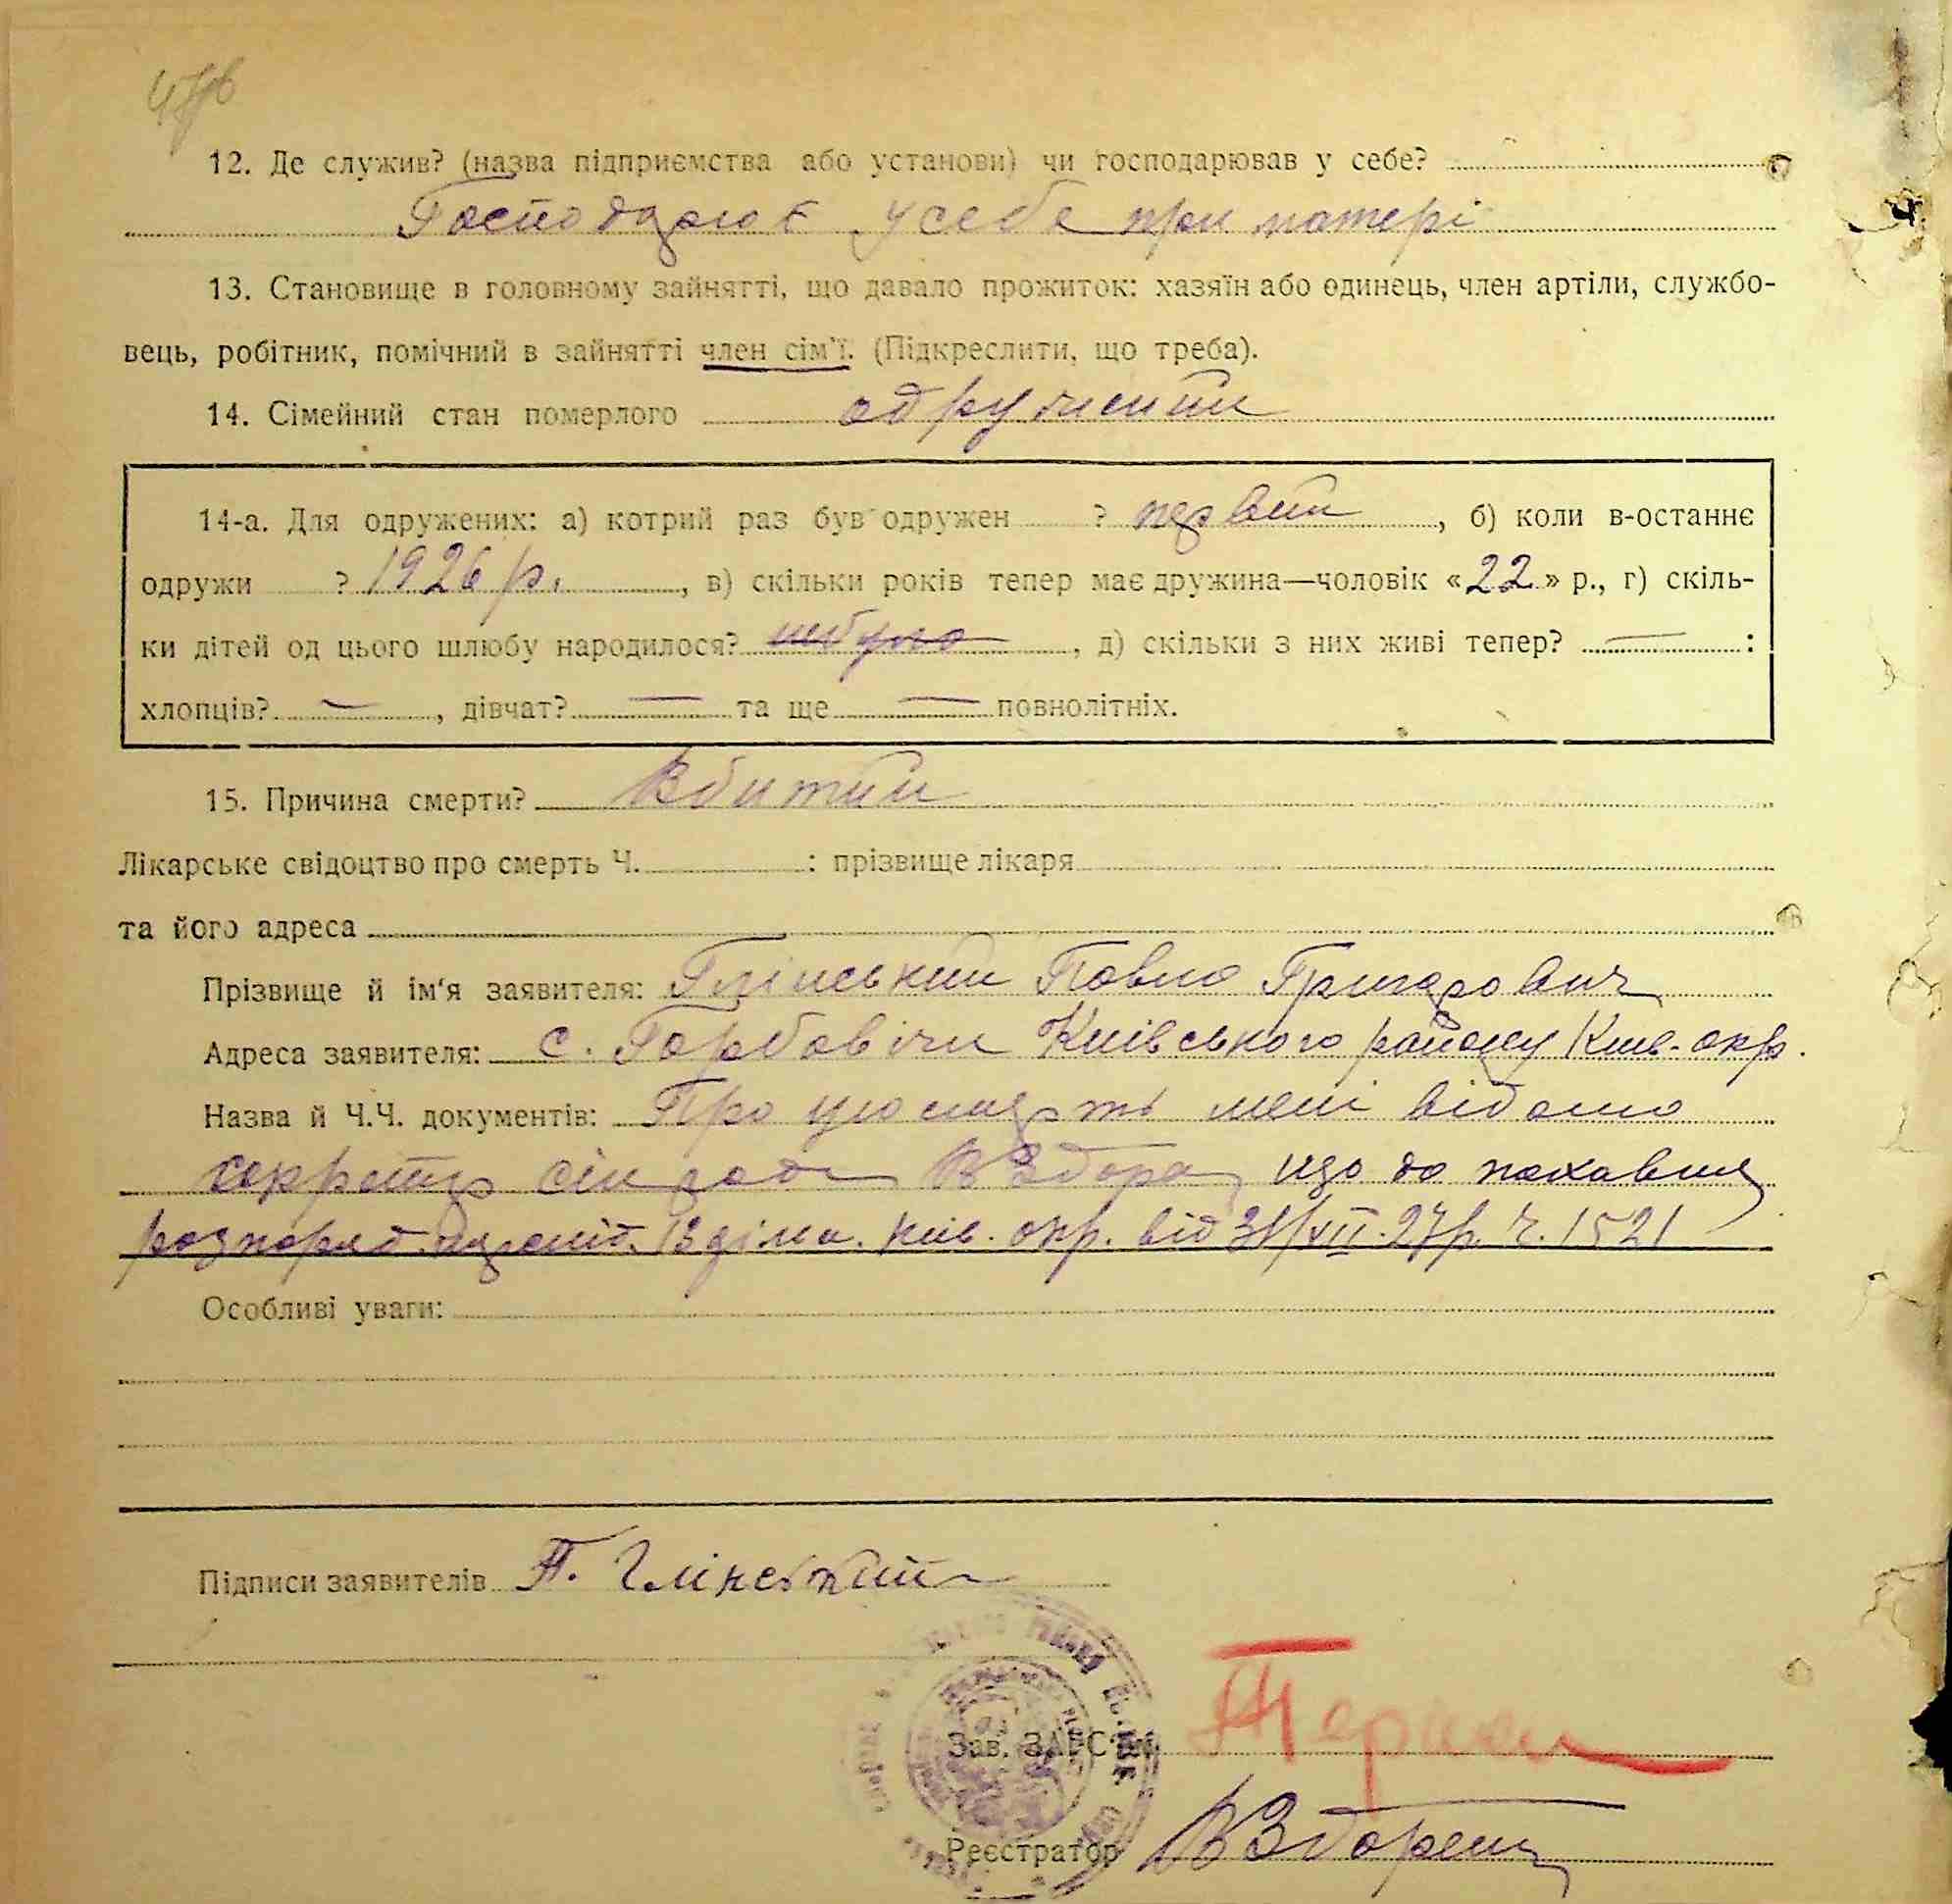 12. Де служив? (назва підприємства або установи) чи господарював у себе?
Господарює у себе при матері
13. Становище в головному зайнятті, що давало прожиток: хазяїн або одинець, член артіли, службо-
вець, робітник, помічний в зайнятті член сім'ї. (Підкреслити, що треба).
14. Сімейний стан померлого одружений
14-а. Для одружених: а) котрий раз був одружен ? первий, б) коли в-останнє
одружи ? 1926 р., в) скільки років тепер має дружина—чоловік «22» р., г) скіль-
ки дітей од цього шлюбу народилося? небуло, д) скільки з них живі тепер? — :
хлопців? —, дівчат? — та ще — повнолітніх.
15. Причина смерти? Вбитий
Лікарське свідоцтво про смерть Ч. : прізвище лікаря
та його адреса
Прізвище й ім'я заявителя: Глінський Павло Григорович
Адреса заявителя: с. Горбовічи Київського району Київ. окр.
Назва й Ч.Ч. документів: Про цю смерть мені відомо
сіл ради В Здора що до поховання
розпоряд. міл. Київ. окр. від 31/XII.27р. Ч. 1521
Особливі уваги:
Підписи заявителів П. Глінський
Зав. ЗАГС'ом
Реєстратор ВЗдорец